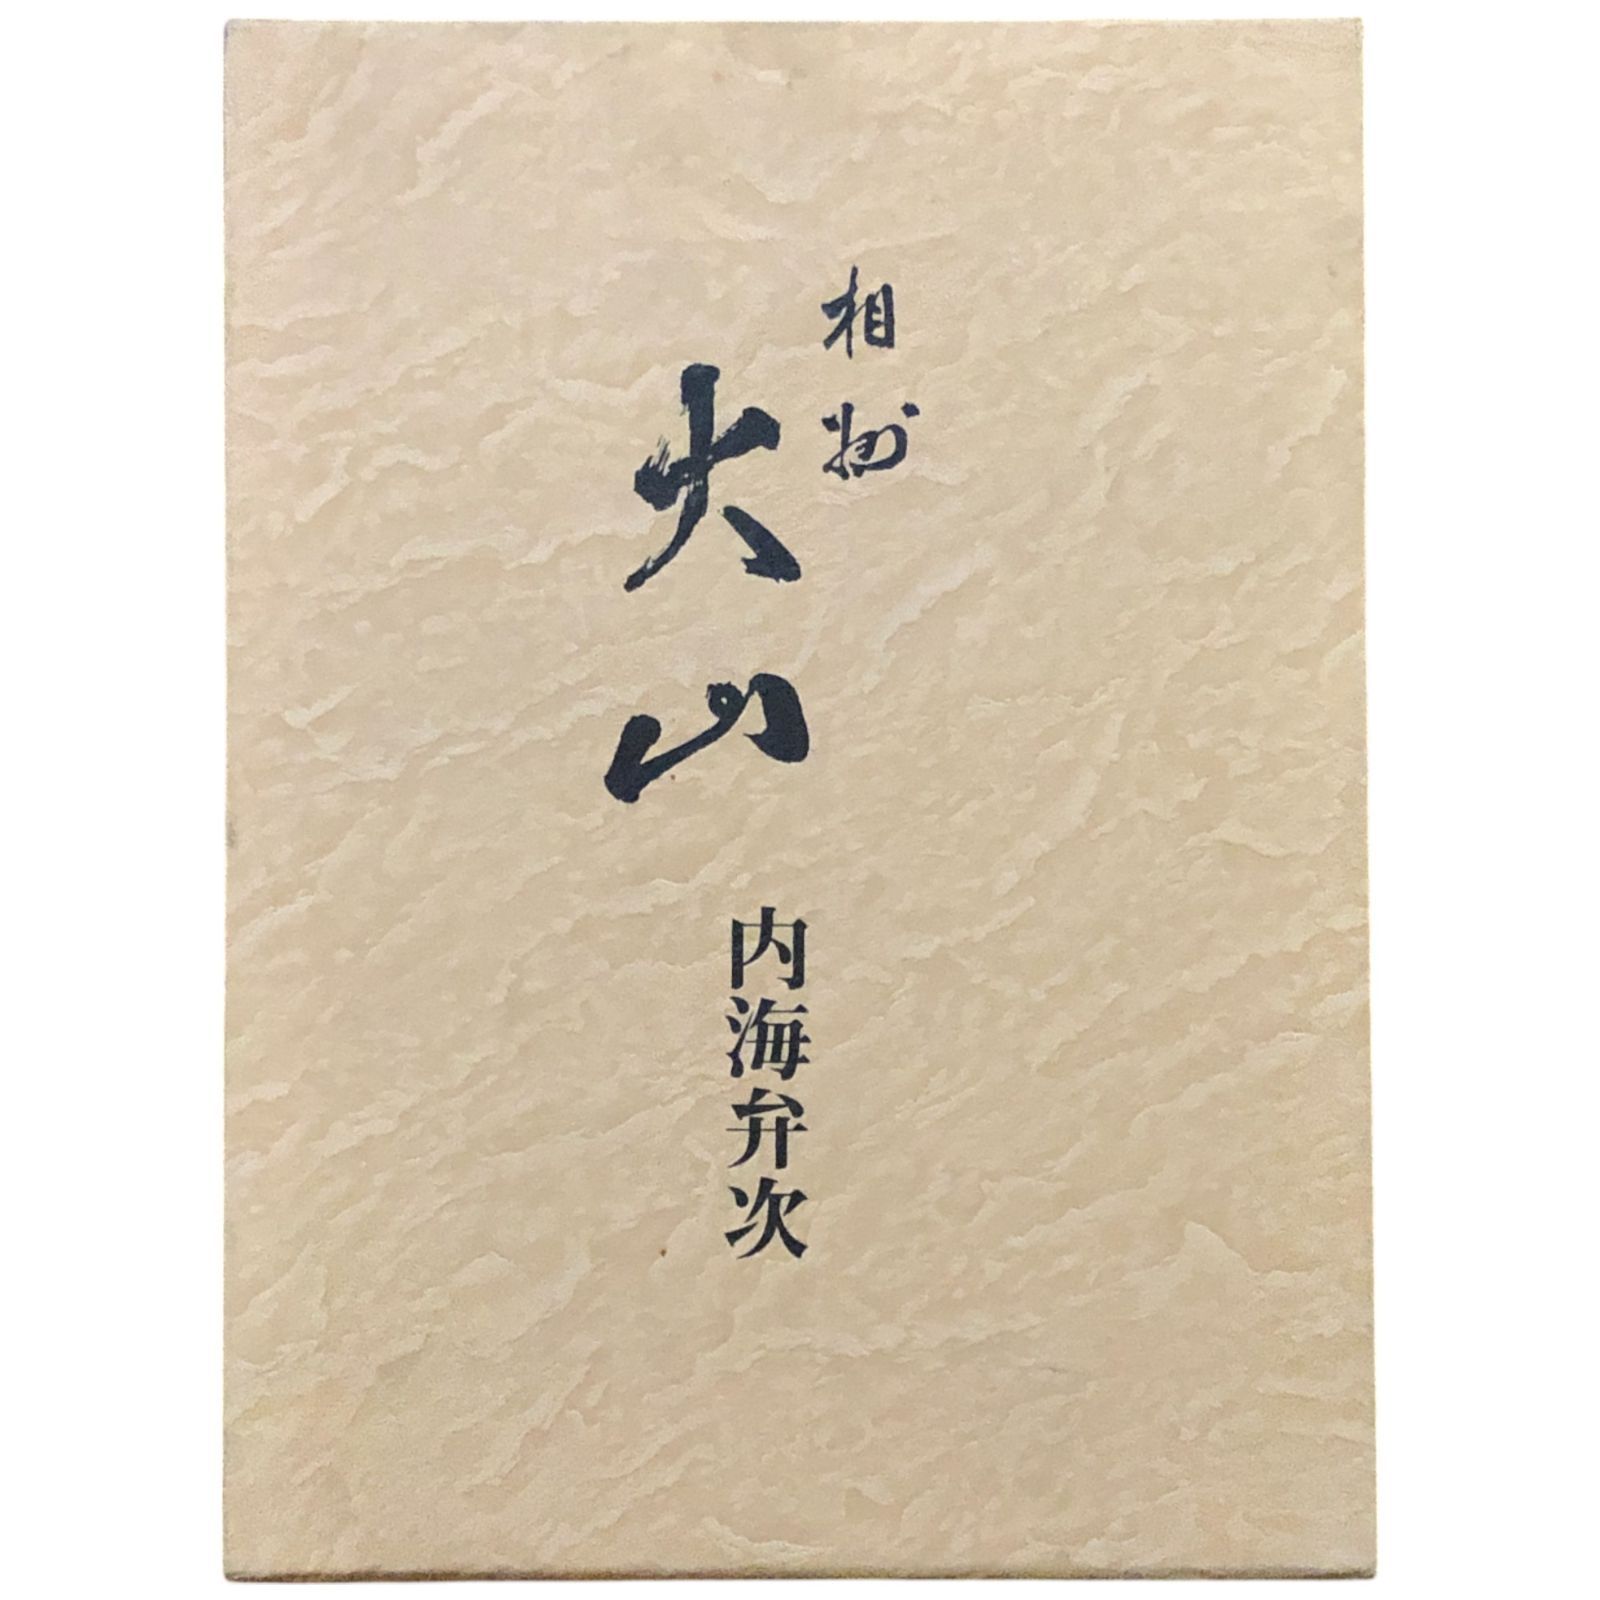 相州
大山
内海弁次